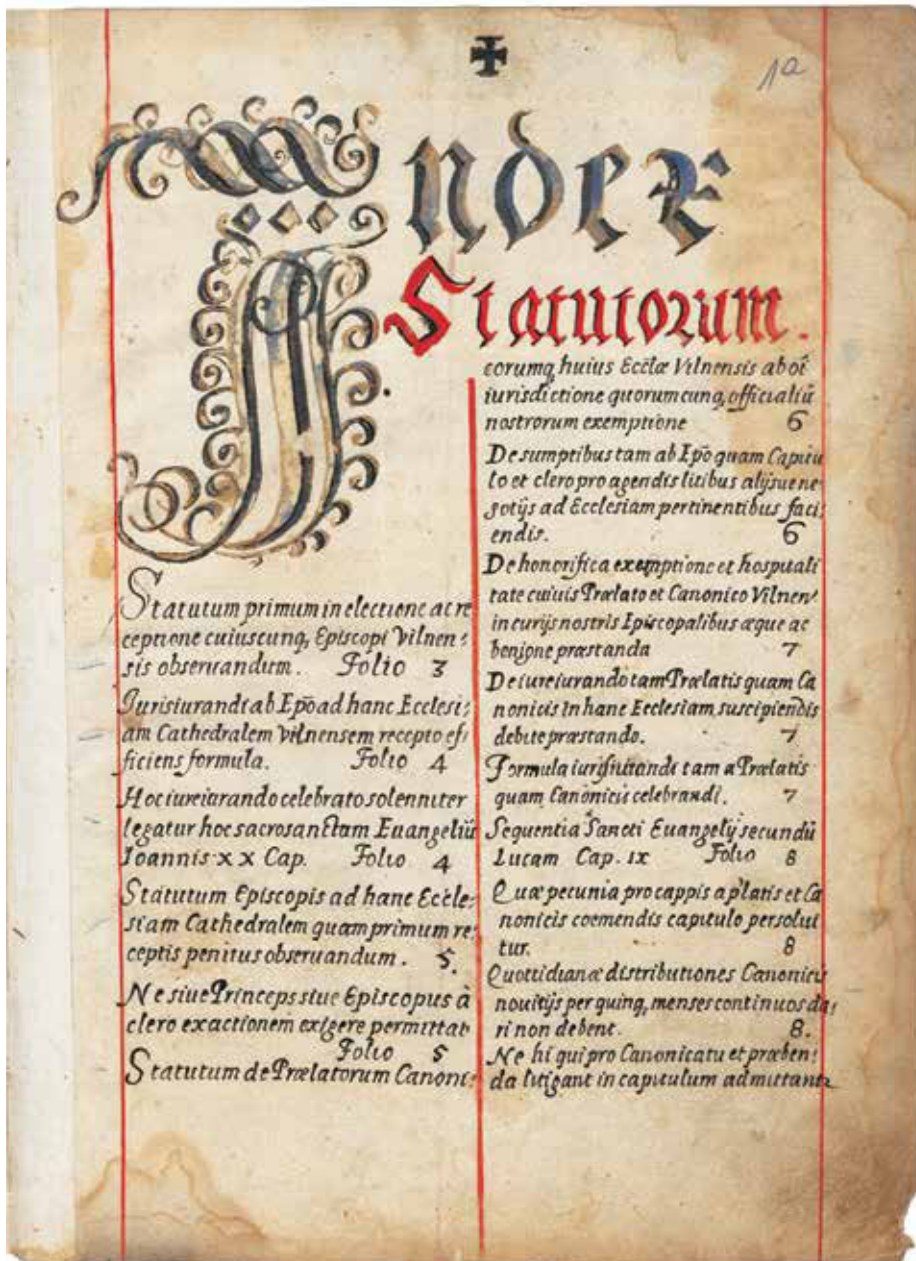 1a
Index
Statutorum.
Statutum primum in electione ac re
ceptione cuiuscunq, Episcopi Vilnen:
sis obseruandum. Folio 3
Iurisiurandi ab Epō ad hanc Ecclesi:
am Cathedralem Vilnensem recepto ef:
ficiens formula. Folio 4
Hoc iureiurando celebrato solenniter
legatur hoc sacrosanctam Euangeliū
Ioannis xx Cap. Folio 4
Statutum Episcopis ad hanc Eccle:
siam Cathedralem quamprimum re:
ceptis penitus obseruandum. 5.
Ne siue Princeps siue Episcopus à
clero exactionem exigere permittat
Folio 5
Statutum de Prælatorum Canoni:
corumq huius Eccłæ Vilnensis ab oī
iurisdictione quorumcunq, officialiū
nostrorum exemptione 6
De sumptibus tam ab Epō quam Capitu
lo et clero pro agendis litibus alijsue ne
gotijs ad Ecclesiam pertinentibus faci,
endis. 6
De honorifica exemptione et hospitali
tate cuiuis Prælato et Canonico Vilnen:
in curijs nostris Episcopalibus æque ac
benigne præstanda 7
De iureiurando tam Prælatis quam Ca
nonicis in hanc Ecclesiam suscipiendis
debite præstando. 7
Formula iurisiurandi tam a Prælatis
quam Canonicis celebrandi. 7
Sequentia Sancti Euangelij secundū
Lucam Cap. ix Folio 8
Quæ pecunia pro cappis a p̄latis et Ca
nonicis coemendis capitulo persolui
tur. 8
Quottidianæ distributiones Canonicis
nouitijs per quinq, menses continuos da:
ri non debent. 8.
Ne hi qui pro Canonicatu et præben:
da litigant in capitulum admittantr